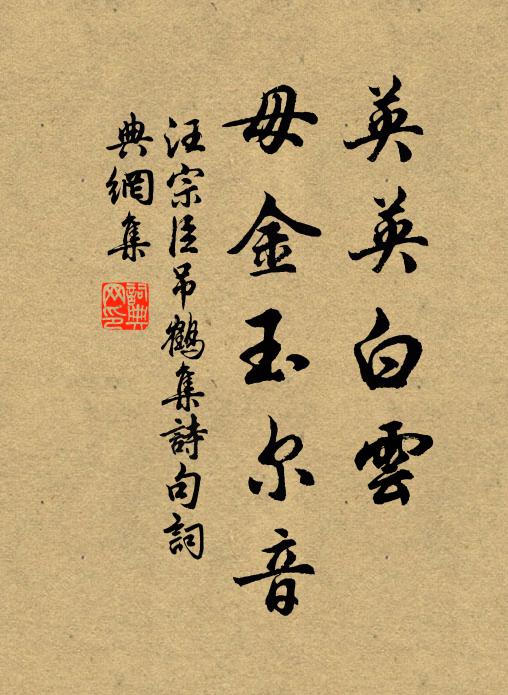 英英白雲
毋金玉尔音
汪宗臣吊鶴集詩句詞
典網集
詞典網印